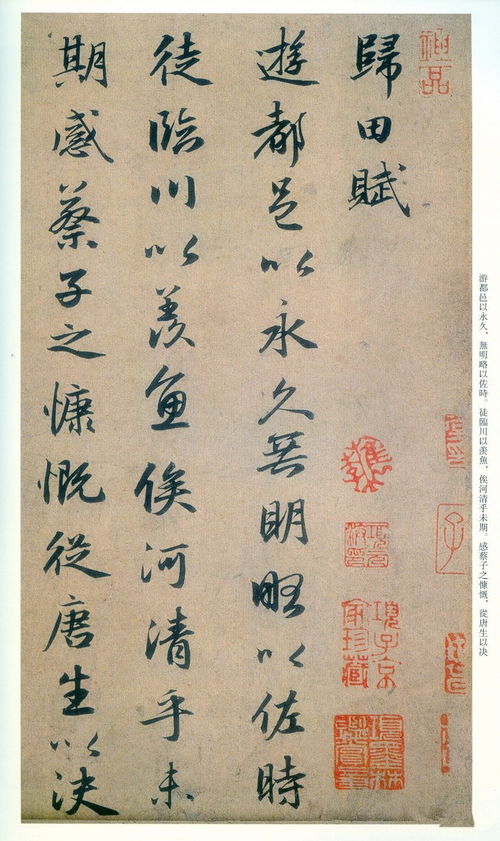 神品
歸田賦
遊都邑以永久無明略以佐時
徒臨川以羨魚俟河清乎未
期感蔡子之慷慨從唐生以決
項子京家珍藏
項墨林鑑賞章
游都邑以永久，無明略以佐時。徒臨川以羨魚，俟河清乎未期。感蔡子之慷慨，從唐生以决